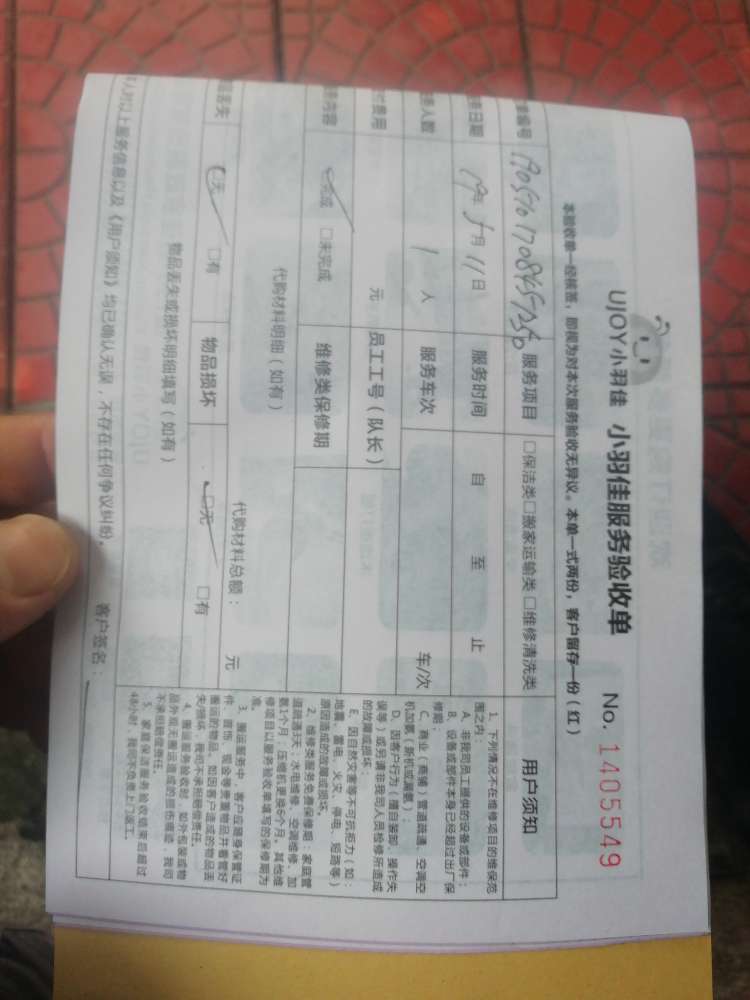 UJOY小羽佳 小羽佳服务验收单 No. 1405549
本验收单一经核签，即视为对本次服务验收无异议。本单一式两份，客户留存一份（红）
编号 服务项目 □保洁类□搬家运输类□维修清洗类
日期 19年5月11日 服务时间 自 至 止
人数 1人 服务车次 车/次
费用 元 员工工号（队长）
内容 完成 □未完成 维修类保修期
代购材料明细（如有）
代购材料总额： 元
丢失 无 □有 物品损坏 □无 □有
物品丢失或损坏明细填写（如有）
人对以上服务信息以及《用户须知》均已确认无误，不存在任何争议纠纷。 客户签名：
用户须知
1、下列情况不在维修项目的维保范
围之内：
A、非我司员工提供的设备或部件；
B、设备或部件本身已经超过出厂保
修期；
C、商业（商铺）管道疏通、空调空
机加氟（新机或漏氟）；
D、因客户行为（擅自装卸、操作失
误等）或另请非我司人员检修所造成
的故障或损坏；
E、因自然灾害等不可抗拒力（如：
地震、蓄电、火灾、停电、短路等）
原因造成的故障或损坏。
2、维修类服务免费保修期：家庭管
道疏通3天；水电维修、空调维修、加
氨1个月；压缩机更换6个月。其他维
修项目以服务验收单填写的保修期为
准。
3、搬运服务中，客户应随身保管证
件、首饰、现金等贵重物品并看管好
搬运的物品，如因客户造成的物品丢
失/损坏，我司不承担赔偿责任。
4、搬运服务验收时，如外包装或物
品外观无搬运造成的损伤痕迹，我司
不承担赔偿责任。
5、家庭保洁服务验收结束后超过
48小时，我司不负责上门返工。